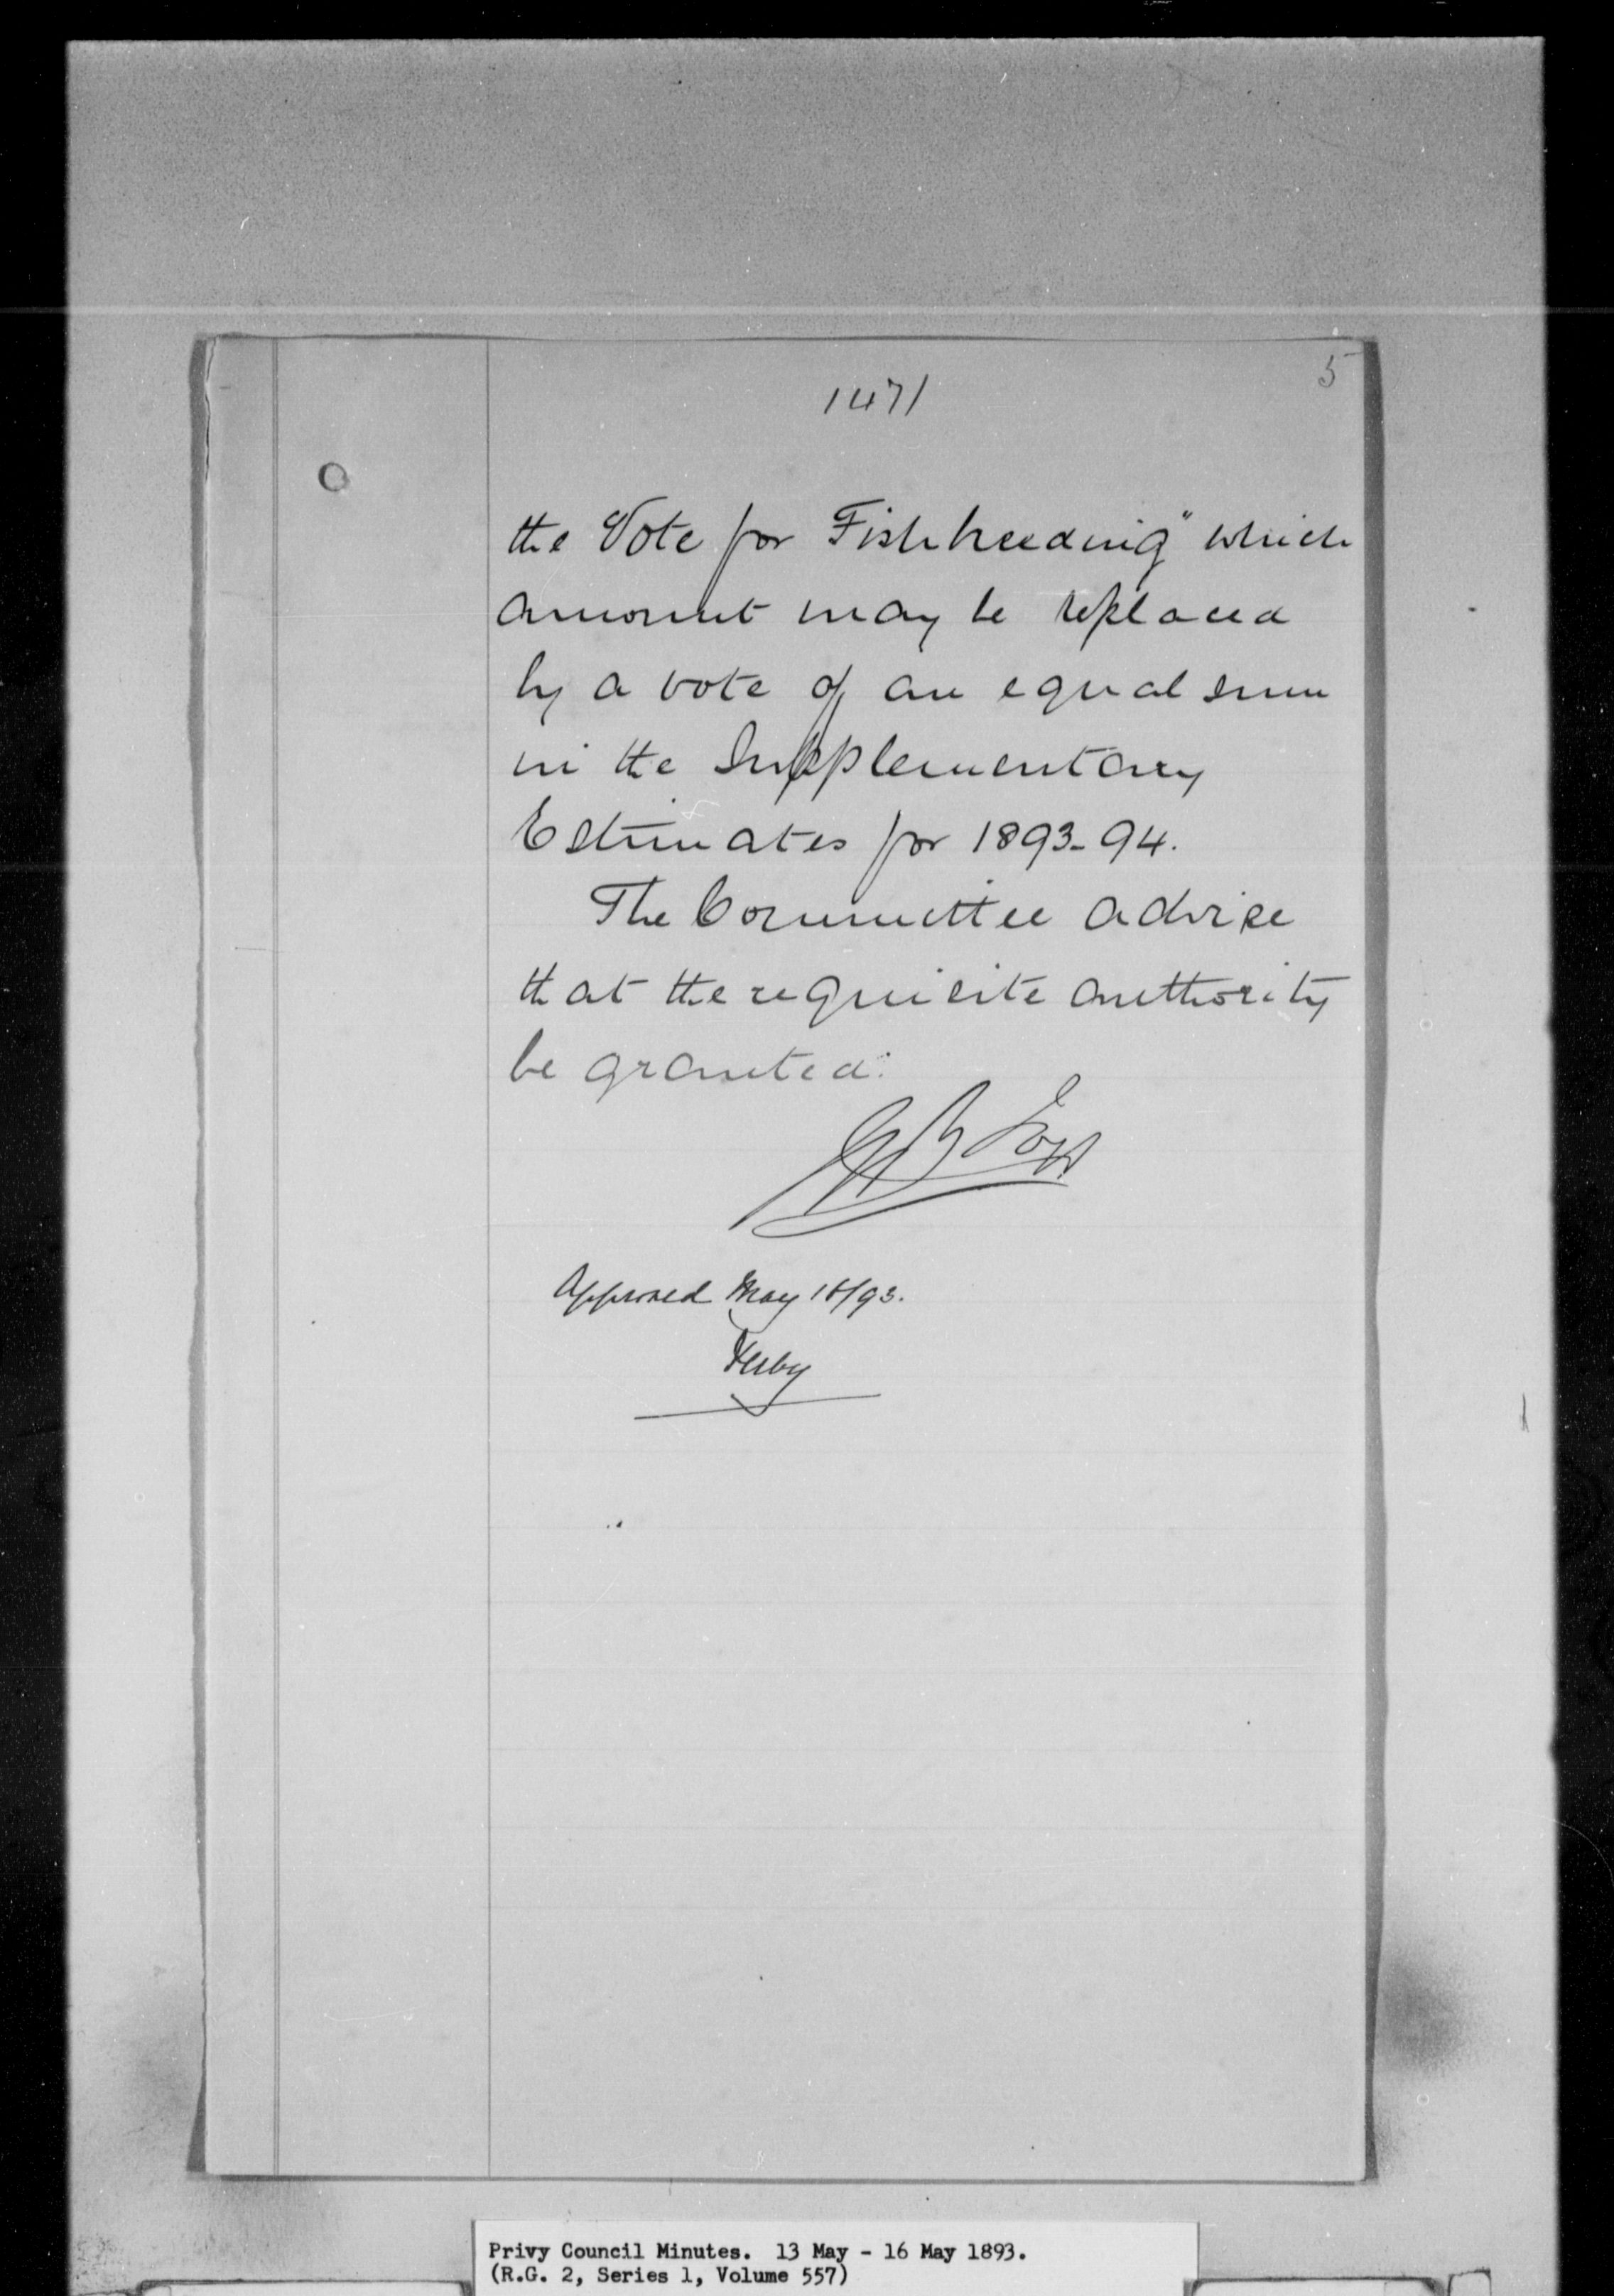 5
1471
the Vote for Fishbreeding" which
amount may be replaced
by a vote of an equal sum
in the Supplementary
Estimates for 1893-94.
The Committee advise
that the requisite authority
be granted.
Approved May 16/93.
Derby
Privy Council Minutes. 13 May - 16 May 1893.
(R.G. 2, Series 1, Volume 557)